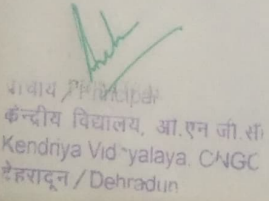 प्राचार्य / Principal
केन्द्रीय विद्यालय, ओ.एन.जी.सी.
Kendriya Vidyalaya, ONGC
देहरादून / Dehradun